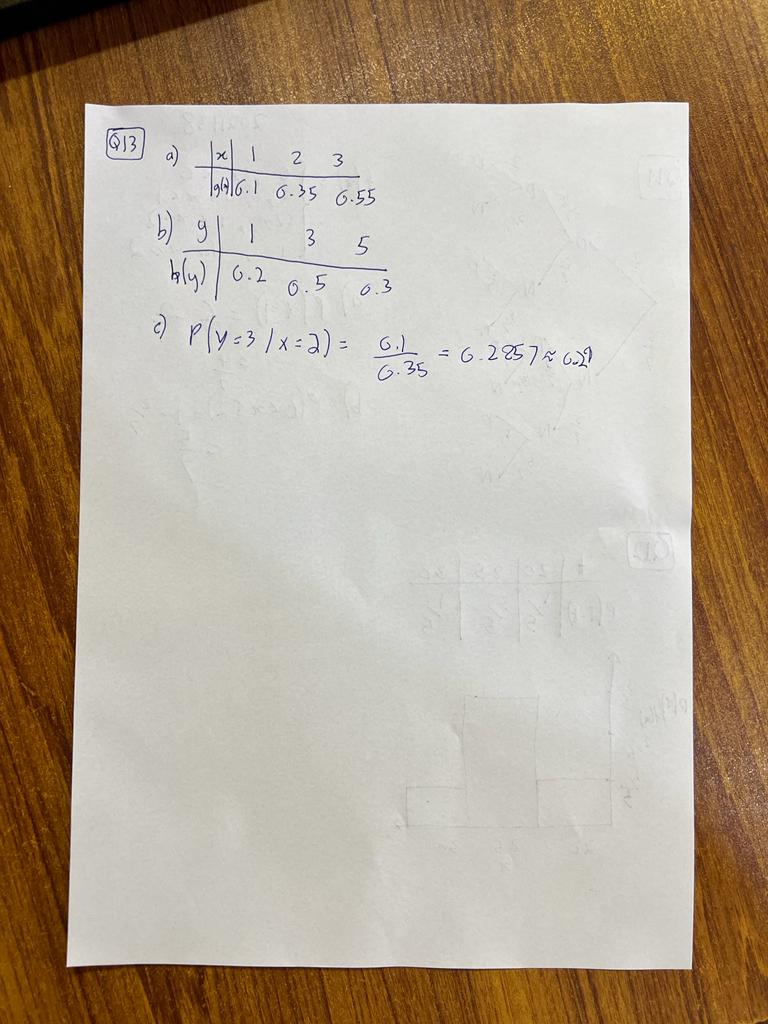 Q13
a) x 1 2 3
g(x) 0.1 0.35 0.55
b) y 1 3 5
h(y) 0.2 0.5 0.3
c) P(Y=3/X=2) = 0.1/0.35 = 0.2857 ≈ 0.29